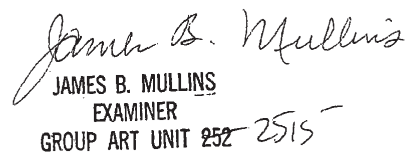 James B. Mullins
JAMES B. MULLINS
EXAMINER
GROUP ART UNIT 252 2515